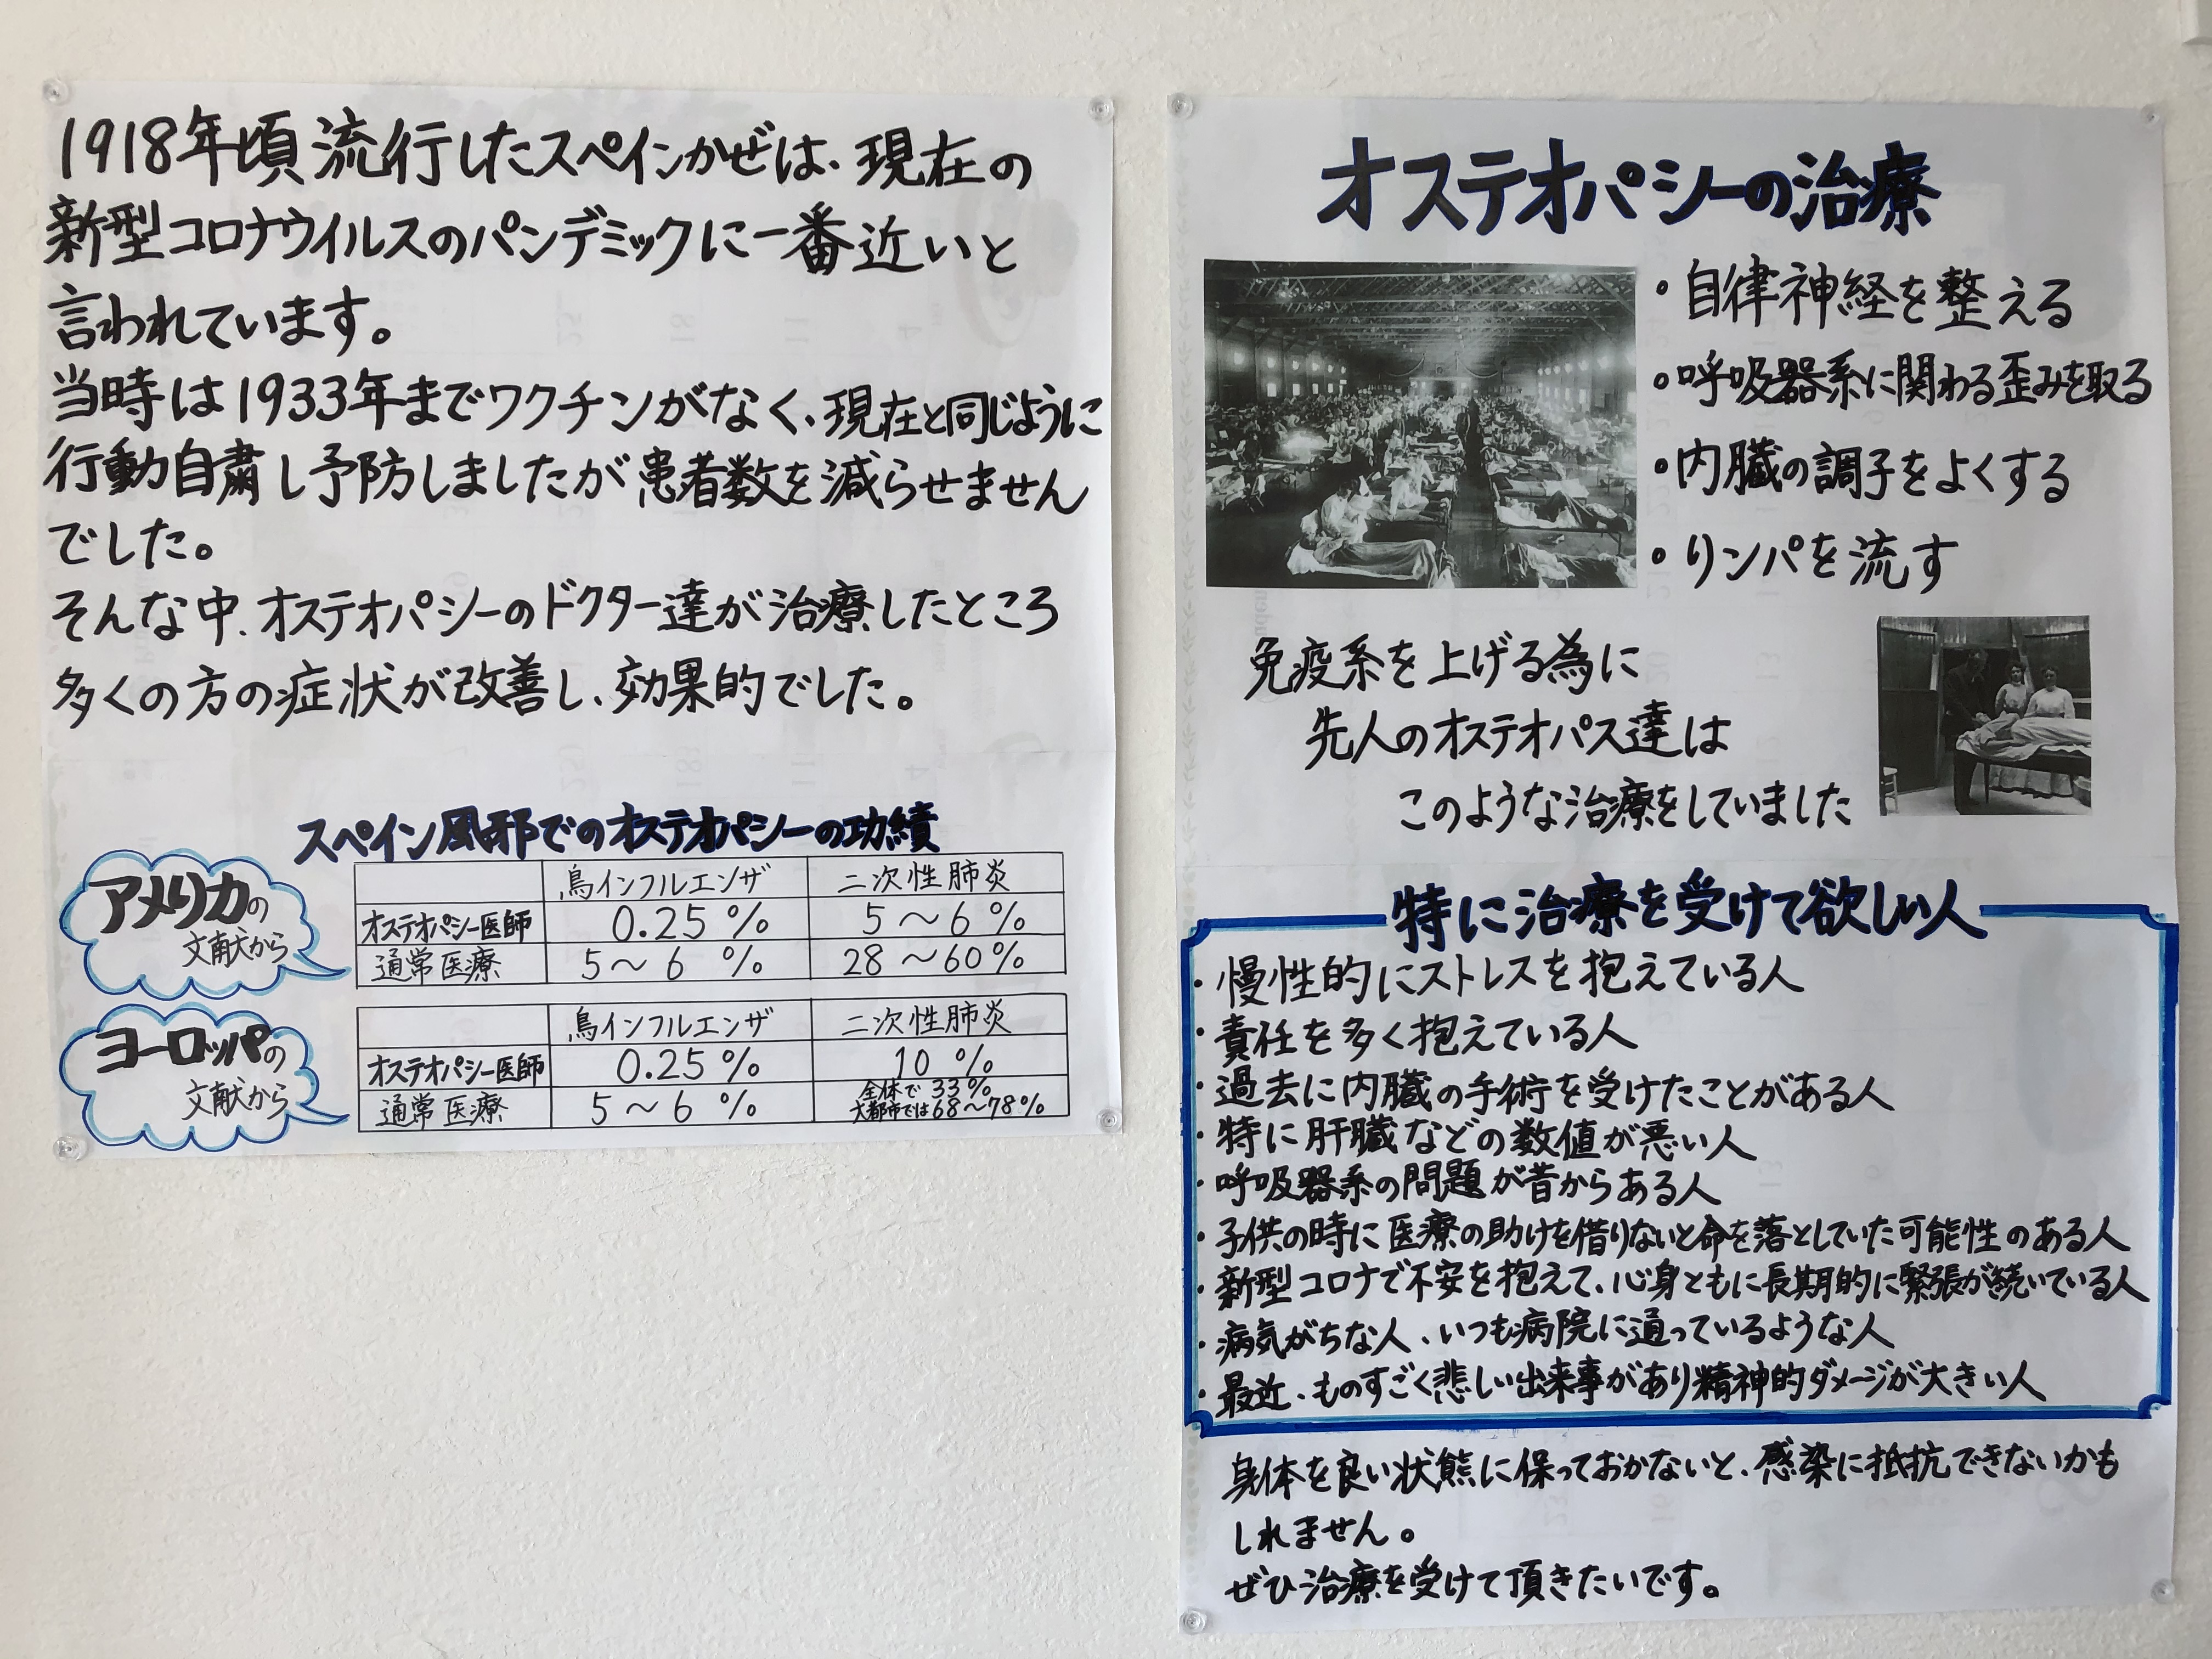 1918年頃流行したスペインかぜは、現在の
新型コロナウイルスのパンデミックに一番近いと
言われています。
当時は1933年までワクチンがなく、現在と同じように
行動自粛し予防しましたが患者数を減らせません
でした。
そんな中、オステオパシーのドクター達が治療したところ
多くの方の症状が改善し、効果的でした。
スペイン風邪でのオステオパシーの功績
アメリカの
文献から
鳥インフルエンザ 二次性肺炎
オステオパシー医師 0.25% 5〜6%
通常医療 5〜6% 28〜60%
ヨーロッパの
文献から
鳥インフルエンザ 二次性肺炎
オステオパシー医師 0.25% 10%
通常医療 5〜6% 全体で33%
大都市では68〜78%
オステオパシーの治療
・自律神経を整える
・呼吸器系に関わる歪みを取る
・内臓の調子をよくする
・リンパを流す
免疫系を上げる為に
先人のオステオパス達は
このような治療をしていました
特に治療を受けて欲しい人
・慢性的にストレスを抱えている人
・責任を多く抱えている人
・過去に内臓の手術を受けたことがある人
・特に肝臓などの数値が悪い人
・呼吸器系の問題が昔からある人
・子供の時に医療の助けを借りないと命を落としていた可能性のある人
・新型コロナで不安を抱えて、心身ともに長期的に緊張が続いている人
・病気がちな人、いつも病院に通っているような人
・最近、ものすごく悲しい出来事があり精神的ダメージが大きい人
身体を良い状態に保っておかないと、感染に抵抗できないかも
しれません。
ぜひ治療を受けて頂きたいです。